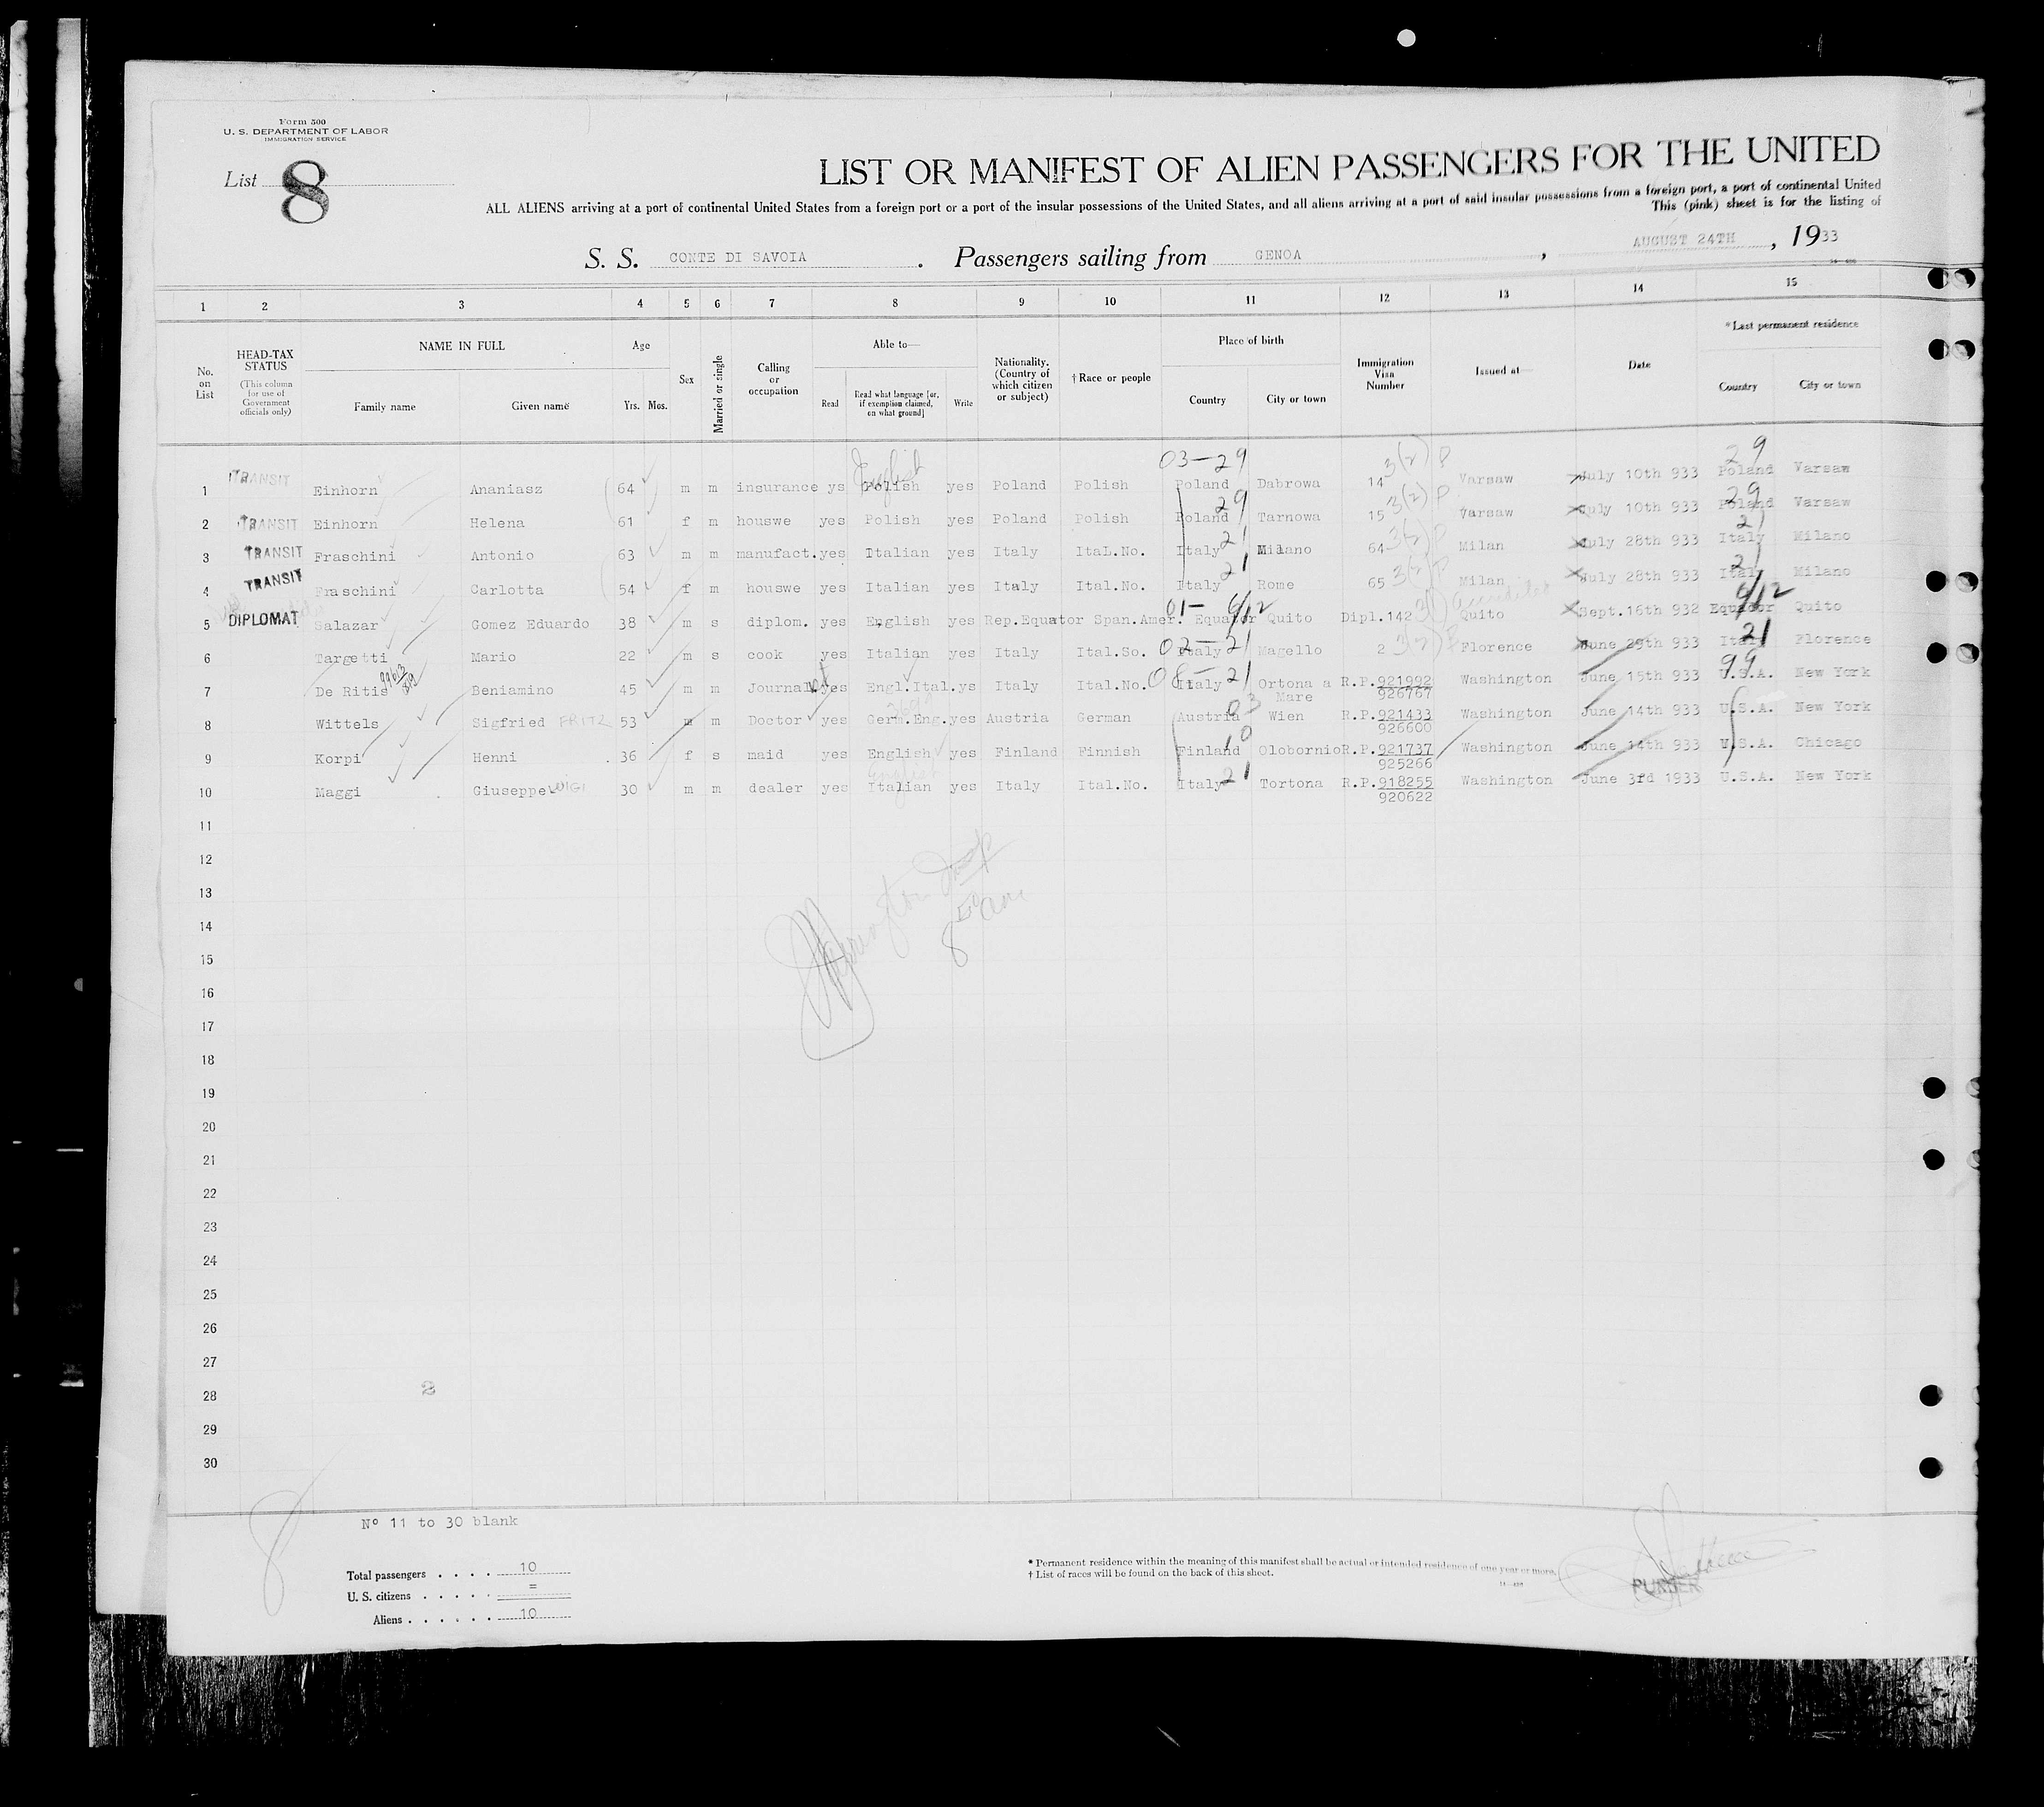 Form 500
U. S. DEPARTMENT OF LABOR
IMMIGRATION SERVICE
List 8
LIST OR MANIFEST OF ALIEN PASSENGERS FOR THE UNITED
ALL ALIENS arriving at a port of continental United States from a foreign port or a port of the insular possessions of the United States, and all aliens arriving at a port of said insular possessions from a foreign port, a port of continental United
This (pink) sheet is for the listing of
S. S. CONTE DI SAVOIA. Passengers sailing from GENOA, AUGUST 24TH, 1933
1 2 3 4 5 6 7 8 9 10 11 12 13 14 15
No. on List
HEAD-TAX STATUS
(This column for use of Government officials only)
NAME IN FULL
Family name
Given name
Age
Yrs. Mos.
Sex
Married or single
Calling or occupation
Able to—
Read
Read what language [or, if exemption claimed, on what ground]
Write
Nationality. (Country of which citizen or subject)
†Race or people
Place of birth
Country
City or town
Immigration Visa Number
Issued at—
Date
*Last permanent residence
Country
City or town
English 03-29 3(2) P 29
1 TRANSIT Einhorn Ananiasz 64 m m insurance ys Polish yes Poland Polish Poland Dabrowa 14 Varsaw July 10th 933 Poland Varsaw
29 3(2) P 29
2 TRANSIT Einhorn Helena 61 f m houswe yes Polish yes Poland Polish Poland Tarnowa 15 Varsaw July 10th 933 Poland Varsaw
3 TRANSIT Fraschini Antonio 63 m m manufact. yes Italian yes Italy ItaL.No. Italy 21 Milano 64 3(2) P Milan July 28th 933 Italy 21 Milano
4 TRANSIT Fraschini Carlotta 54 f m houswe yes Italian yes Italy Ital.No. Italy 21 Rome 65 3(2) P Milan July 28th 933 Italy 21 Milano
01- 6/12 3(1) Accredited 6/12
5 DIPLOMAT Salazar Gomez Eduardo 38 m s diplom. yes English yes Rep.Equator Span.Amer. Equator Quito Dipl.142 Quito Sept.16th 932 Equador Quito
6 Targetti Mario 22 m s cook yes Italian yes Italy Ital.So. 02-21 Italy Magello 2 3(2) P Florence June 29th 933 Italy 21 Florence
7 De Ritis Beniamino 45 m m Journal. yes Engl.Ital. ys Italy Ital.No. 08-21 Italy Ortona a Mare R.P.921992 926767 Washington June 15th 933 99 U.S.A. New York
8 Wittels Sigfried FRITZ 53 m m Doctor yes Germ.Eng. yes Austria German Austria 03 Wien R.P.921433 926600 Washington June 14th 933 U.S.A. New York
9 Korpi Henni 36 f s maid yes English yes Finland Finnish Finland 10 Olobornio R.P.921737 925266 Washington June 14th 933 U.S.A. Chicago
English
10 Maggi Giuseppe LUIGI 30 m m dealer yes Italian yes Italy Ital.No. Italy 21 Tortona R.P.918255 920622 Washington June 3rd 1933 U.S.A. New York
11
12
13
14
15
16
17
18
19
20
21
22
23
24
25
26
27
28
2
29
30
8
Nº 11 to 30 blank
Total passengers . . . . 10
U. S. citizens . . . . . =
Aliens . . . . . . 10
* Permanent residence within the meaning of this manifest shall be actual or intended residence of one year or more.
† List of races will be found on the back of this sheet.
PURSER